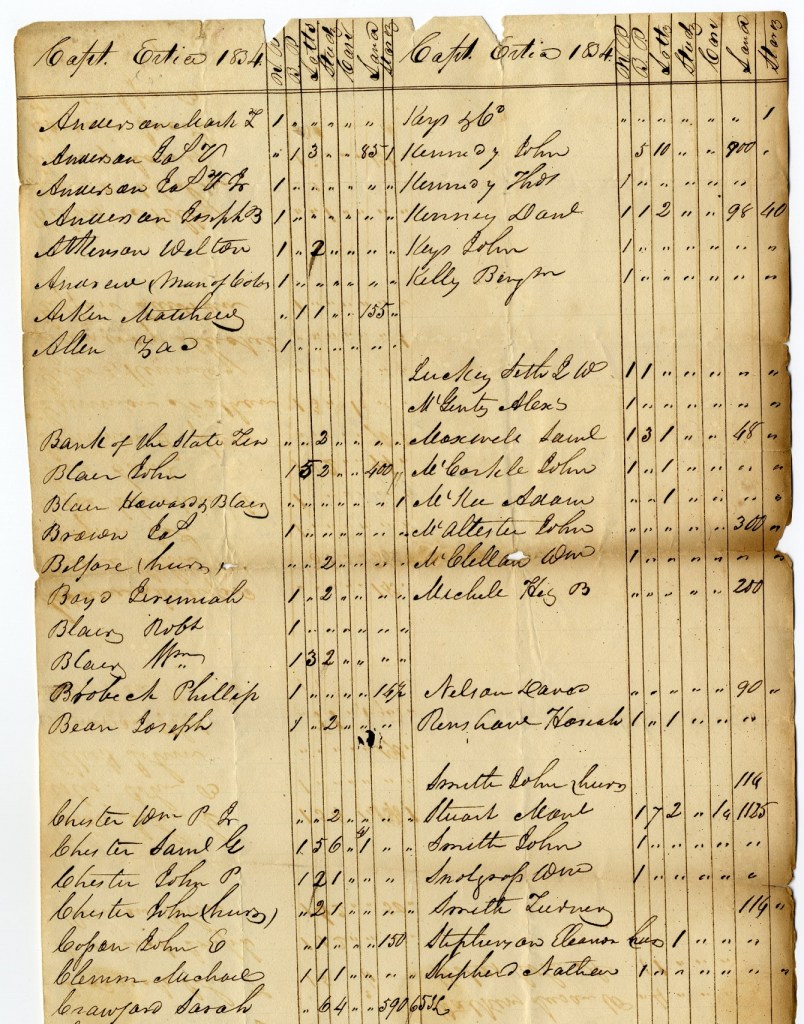 Capt. Ertia 1834 W.P B.P. Lotts Stud Cari Land Stores
Anderson Mark L 1 " " " " "
Anderson Jas V " 1 3 " " 85 1
Anderson Jas V Jr 1 " " " " " "
Anderson Joseph B 1 " " " " " "
Atkinson Welton 1 " 2 " " " "
Andrew (Man of Color 1 " " " " " "
Aiken Matthew " 1 1 " " 155 "
Allen Zac 1 " " " " " "
Bank of the State Ten " " 2 " " " "
Blair John 1 5 2 " " 400 "
Blair Howard & Blair " " " " " " 1
Brown Jas 1 " " " " " "
Belfore (heirs) " " 2 " " " "
Boyd Jeremiah 1 " 2 " " " "
Blair Robt 1 " " " " " "
Blair Wm 1 3 2 " " " "
Brobeck Phillip 1 " " " " 16½
Bean Joseph 1 " 2 " " " "
Chester Wm P Jr " " 2 " " " "
Chester Saml G 1 5 6 " 1 " "
Chester John P 1 2 1 " " " "
Chester John (heirs) " 2 1 " " " "
John E " 1 " " " 150
Clemm Michael 1 1 1 " " " "
Crawford Sarah " 6 4 " " 590
Capt. Ertia 1834 W P B P. Lotts Stud Cari Land Stores
Keys & Co " " " " " " 1
Kennedy John 5 10 " " 900 "
Kennedy Thos 1 " " " " "
Kenney Danl 1 1 2 " " 98 40
Keys John 1 " " " " " "
Kelly 1 " " " " " "
Luckey Seth J W 1 1 " " " " "
McGinty Alexr 1 " " " " " "
Maxwell Saml 1 3 1 " " 48 "
McCorkle John 1 " 1 " " " "
McKee Adam " " 1 " " " "
McAllester John " " " " " 300 "
McClellan Wm 1 " " " " " "
Michele B " " " " " 200
Nelson David " " " " " 90 "
Renshaw Hosiah 1 " 1 " " " "
Smith John (heirs 114
Stuart Mont 1 7 2 " 1 1125
Smith John 1 " " " " " "
Snodgrass Wm 1 " " " " "
Smith Turney 114 "
Stephenson Eleanor 1 " " " "
Shepherd Nathan 1 " " " " " "